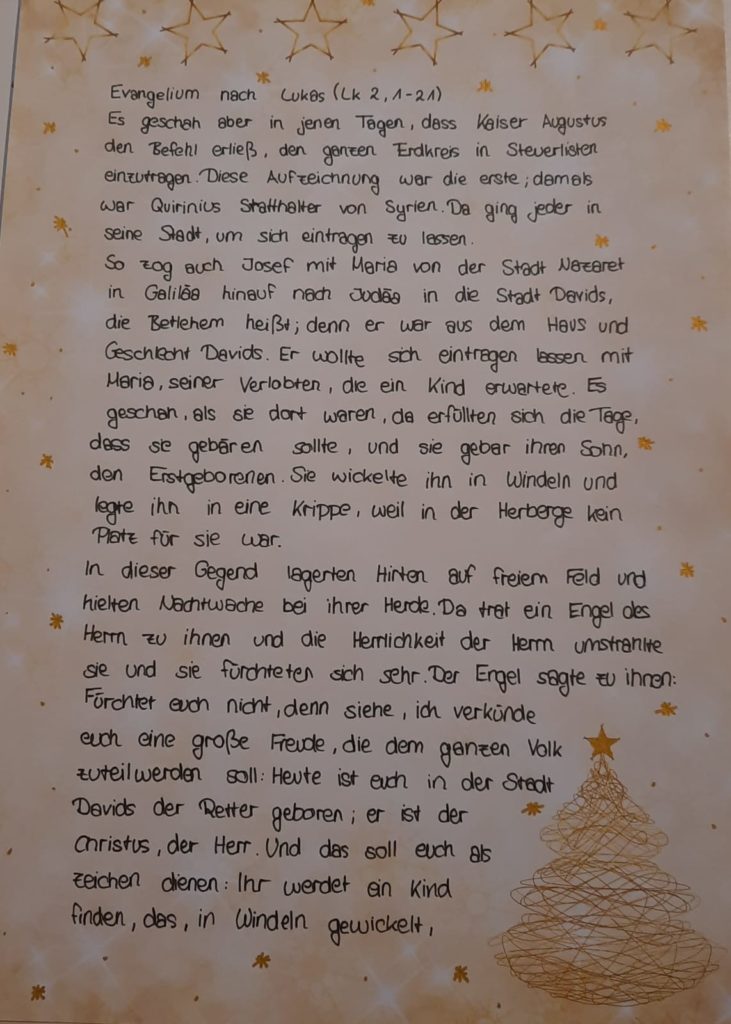 Evangelium nach Lukas (Lk 2, 1-21)
Es geschah aber in jenen Tagen, dass Kaiser Augustus
den Befehl erließ, den ganzen Erdkreis in Steuerlisten
einzutragen. Diese Aufzeichnung war die erste; damals
war Quirinius Statthalter von Syrien. Da ging jeder in
seine Stadt, um sich eintragen zu lassen.
So zog auch Josef mit Maria von der Stadt Nazaret
in Galiläa hinauf nach Judäa in die Stadt Davids,
die Betlehem heißt; denn er war aus dem Haus und
Geschlecht Davids. Er wollte sich eintragen lassen mit
Maria, seiner Verlobten, die ein Kind erwartete. Es
geschah, als sie dort waren, da erfüllten sich die Tage,
dass sie gebären sollte, und sie gebar ihren Sohn,
den Erstgeborenen. Sie wickelte ihn in Windeln und
legte ihn in eine Krippe, weil in der Herberge kein
Platz für sie war.
In dieser Gegend lagerten Hirten auf freiem Feld und
hielten Nachtwache bei ihrer Herde. Da trat ein Engel des
Herrn zu ihnen und die Herrlichkeit der Herrn umstrahlte
sie und sie fürchteten sich sehr. Der Engel sagte zu ihnen:
Fürchtet euch nicht, denn siehe, ich verkünde
euch eine große Freude, die dem ganzen Volk
zuteilwerden soll: Heute ist euch in der Stadt
Davids der Retter geboren; er ist der
Christus, der Herr. Und das soll euch als
zeichen dienen: Ihr werdet ein Kind
finden, das, in Windeln gewickelt,